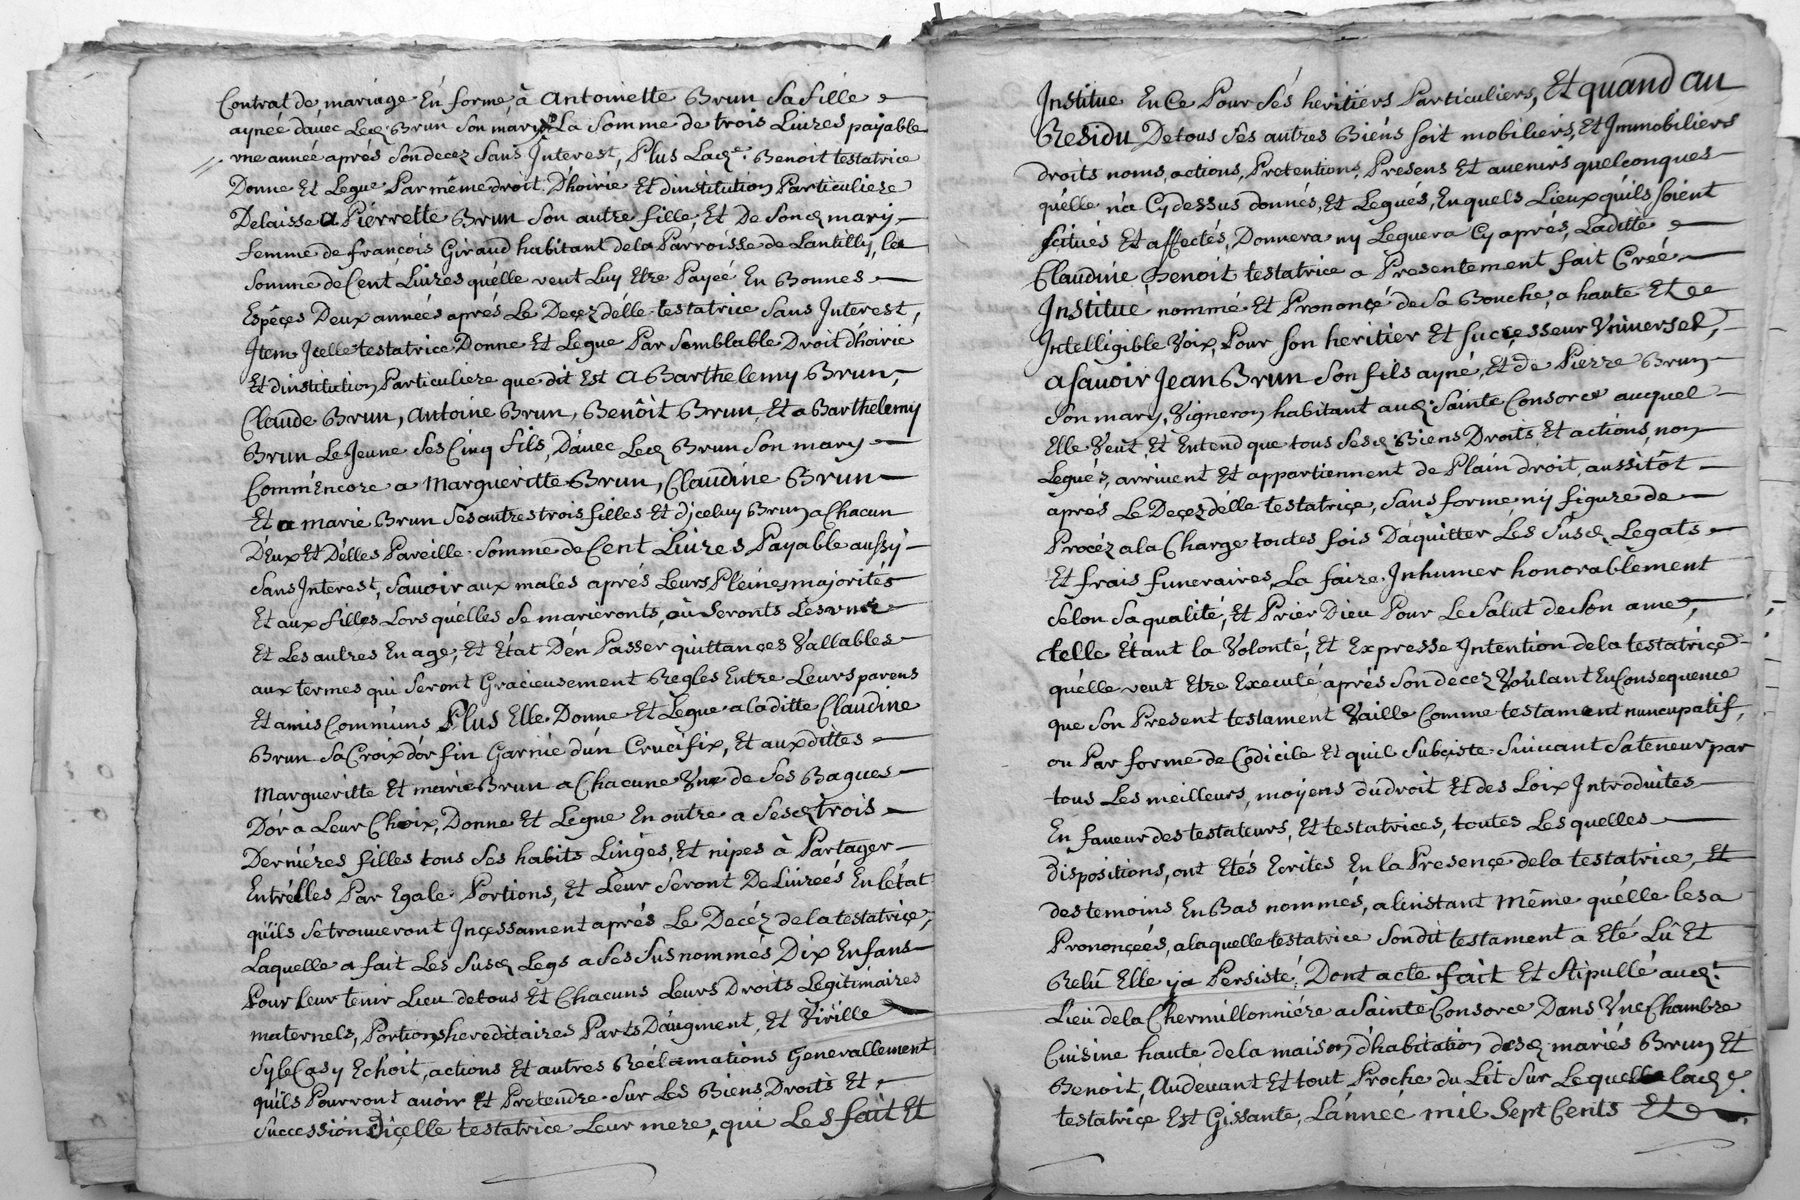 Contrat de mariage En forme, à Antoinette Brun Sa fille
aynéé d'avec Led. Brun Son mary La Somme de trois Livres payable
vne année aprés Son decez Sans Interest, Plus Lade. Benoit testatrice
Donne Et Legue Par même droit D'hoirie Et dinstitution Particuliere
Delaisse a Pierrette Brun Son autre fille, Et De Sond mary
femme de françois Giraud habitant de la Parroisse de Lantilly, la
Somme de Cent Livres qu'elle veut Luy Etre Payéé En Bonnes
Espêçes Deux annéés aprés Le Deçez d'elle testatrice Sans Interest,
Item Icelle testatrice Donne Et Legue Par Semblable Droit d'hoirie
Et dinstitution Particuliere que dit Est A Barthelemy Brun,
Claude Brun, Antoine Brun, Benôit Brun, Et a Barthelemy
Brun Le Jeune Ses Cinq fils, D'avec Led Brun Son mary
Comm'Encore a Margueritte Brun, Claudine Brun
Et a marie Brun Ses autres trois filles Et d'jceluy Brun a Chacun
D'Eux Et D'elles Pareille Somme de Cent Livres Payable aussy
Sans Interest, Savoir aux males aprés Leurs Pleines majorités
Et aux filles Lors qu'elles Se marieronts, où Seronts Les vnes
Et Les autres En age, Et Etat D'en Passer quittançes Vallables
aux termes qui Seront Gracieusement Regles Entre Leurs parens
Et amis Communs Plus Elle Donne Et Legue a laditte Claudine
Brun Sa Croix d'or fin Garnie d'un Crucifix, Et auxdittes
Margueritte Et marie Brun a Chacune Vne de Ses Bagues
D'or a Leur Choix, Donne Et Legue En outre a Sesd trois
Derniéres filles tous Ses habits Linges, Et nipes à Partager
Entr'elles Par Egale Portions, Et Leur Seront Delivréés En l'état
quils Se trouveront Inçessament aprés Le Decéz de la testatriçe,
Laquelle a fait Les Susd Legs a Ses Susnommés Dix Enfans
Pour Leur tenir Lieu de tous Et Chacuns Leurs Droits Legitimaires
maternels, Portions hereditaires Parts D'augment, Et Virille
Sy le Cas y Echoit, actions Et autres Réclamations Generallement
quils Pourront avoir Et Pretendre Sur Les Biens, Droits Et
Succession D'içelle testatrice Leur mere, qui Les fait Et
Institue En Ce Pour Sés heritiers Particuliers, Et quand Au
Residu De tous Ses autres Biéns Soit mobiliers, Et Immobiliers
droits noms, actions, Pretentions, Presens Et avenirs quelconques
qu'elle n'a Cy dessus donnés, Et Legués, En quels Lieux quils Soient
Scitués Et affectés, Donnera ny Leguera Cy aprés, Laditte
Claudine Benoit testatrice a Presentement fait Créé
Institué nommé Et Prononçé de Sa Bouche, a haute Et
Intelligible Voix, Pour Son heritier Et Sucçesseur Vniversel,
a Savoir Jean Brun Son fils ayné, Et de Pierre Brun
Son mary, Vigneron habitant aud. Sainte Consorce auquel
Elle Veut, Et Entend que tous Sesd Biens Droits, Et actions, non
Legués, arrivent Et appartiennent de Plain droit, aussitôt
aprés Le Deçez d'elle testatriçe, Sans forme, ny figure de
Procéz a la Charge toutes fois D'aquitter Les Susd. Legats
Et frais funeraires, La faire Inhumer honorablement
Selon Sa qualité, Et Prier Dieu Pour Le Salut de Son ame,
telle Etant la Volonté, Et Expresse Intention de la testatriçe
qu'elle veut Etre Executé aprés Son decez Voulant En Consequence
que Son Present testament Vaille Comme testament nuncupatif,
ou Par forme de Codicile Et quil Subçiste Suivant Sa teneur par
tous Les meilleurs, moÿens du droit Et des Loix Introduites
En faveur des testateurs, Et testatrices, toutes Lesquelles
dispositions, ont Etés Ecrites En la Presençe de la testatrice, Et
des temoins En Bas nommés, a linstant Même qu'elle les a
Prononçéés, a laquelle testatrice Son dit testament a Eté Lû Et
Relû Elle ÿ a Persisté, Dont acte fait Et Stipullé aud.
Lieu de la Chermillonniére a Sainte Consorce Dans Vne Chambre
Cuisine haute de la maison d'habitation desd mariés Brun Et
Benoit, Au devant Et tout Proche du Lit Sur Lequel lade
testatriçe Est Gissante, L'annéé mil Sept Cents Et